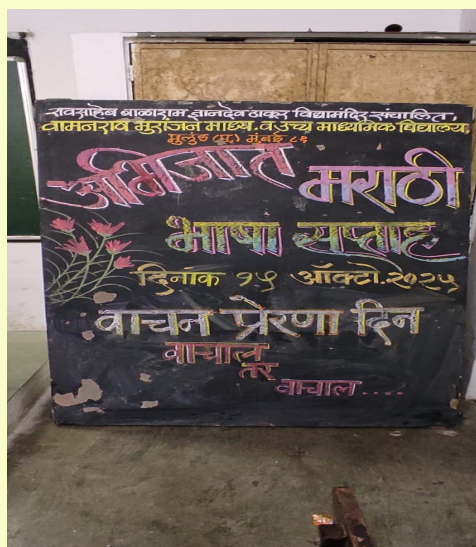 रावसाहेब बाळाराम ज्ञानदेव ठाकूर विद्यामंदिर संचालित,
वामनराव मुरांजन माध्य. व उच्च माध्यमिक विद्यालय
मुलुंड (पू.) मुंबई ८१
अभिजात मराठी
भाषा सप्ताह
दिनांक १५ ऑक्टो. २०२५
वाचन प्रेरणा दिन
वाचाल
तर
वाचाल....